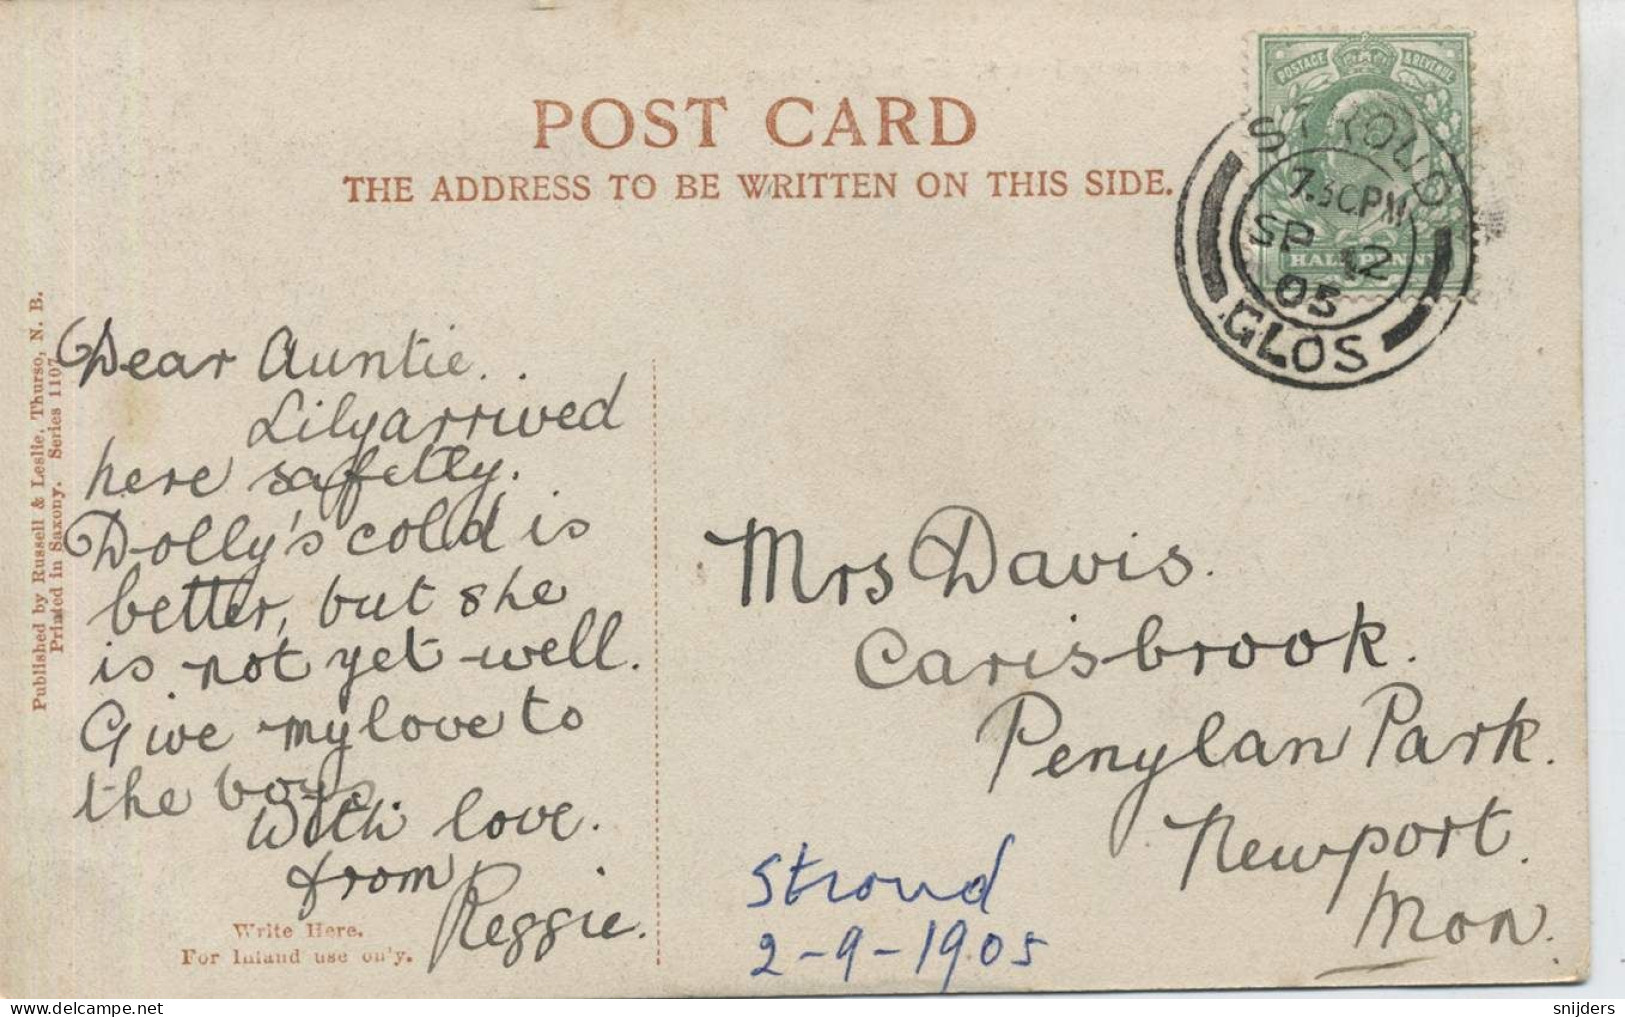 POST CARD
THE ADDRESS TO BE WRITTEN ON THIS SIDE.
POSTAGE & REVENUE
HALFPENNY
STROUD
7.30PM
SP 12
05
GLOS
Published by Russell & Leslie, Thurso, N. B.
Printed in Saxony. Series 1107
Dear Auntie..
Lily arrived
here safetly.
Dolly's cold is
better, but she
is not yet well.
Give my love to
the boys.
With love.
from
Reggie.
Write Here.
For Inland use only.
Mrs Davis.
Carisbrook.
Penylan Park.
Newport.
Mon.
Stroud
2-9-1905
snijders